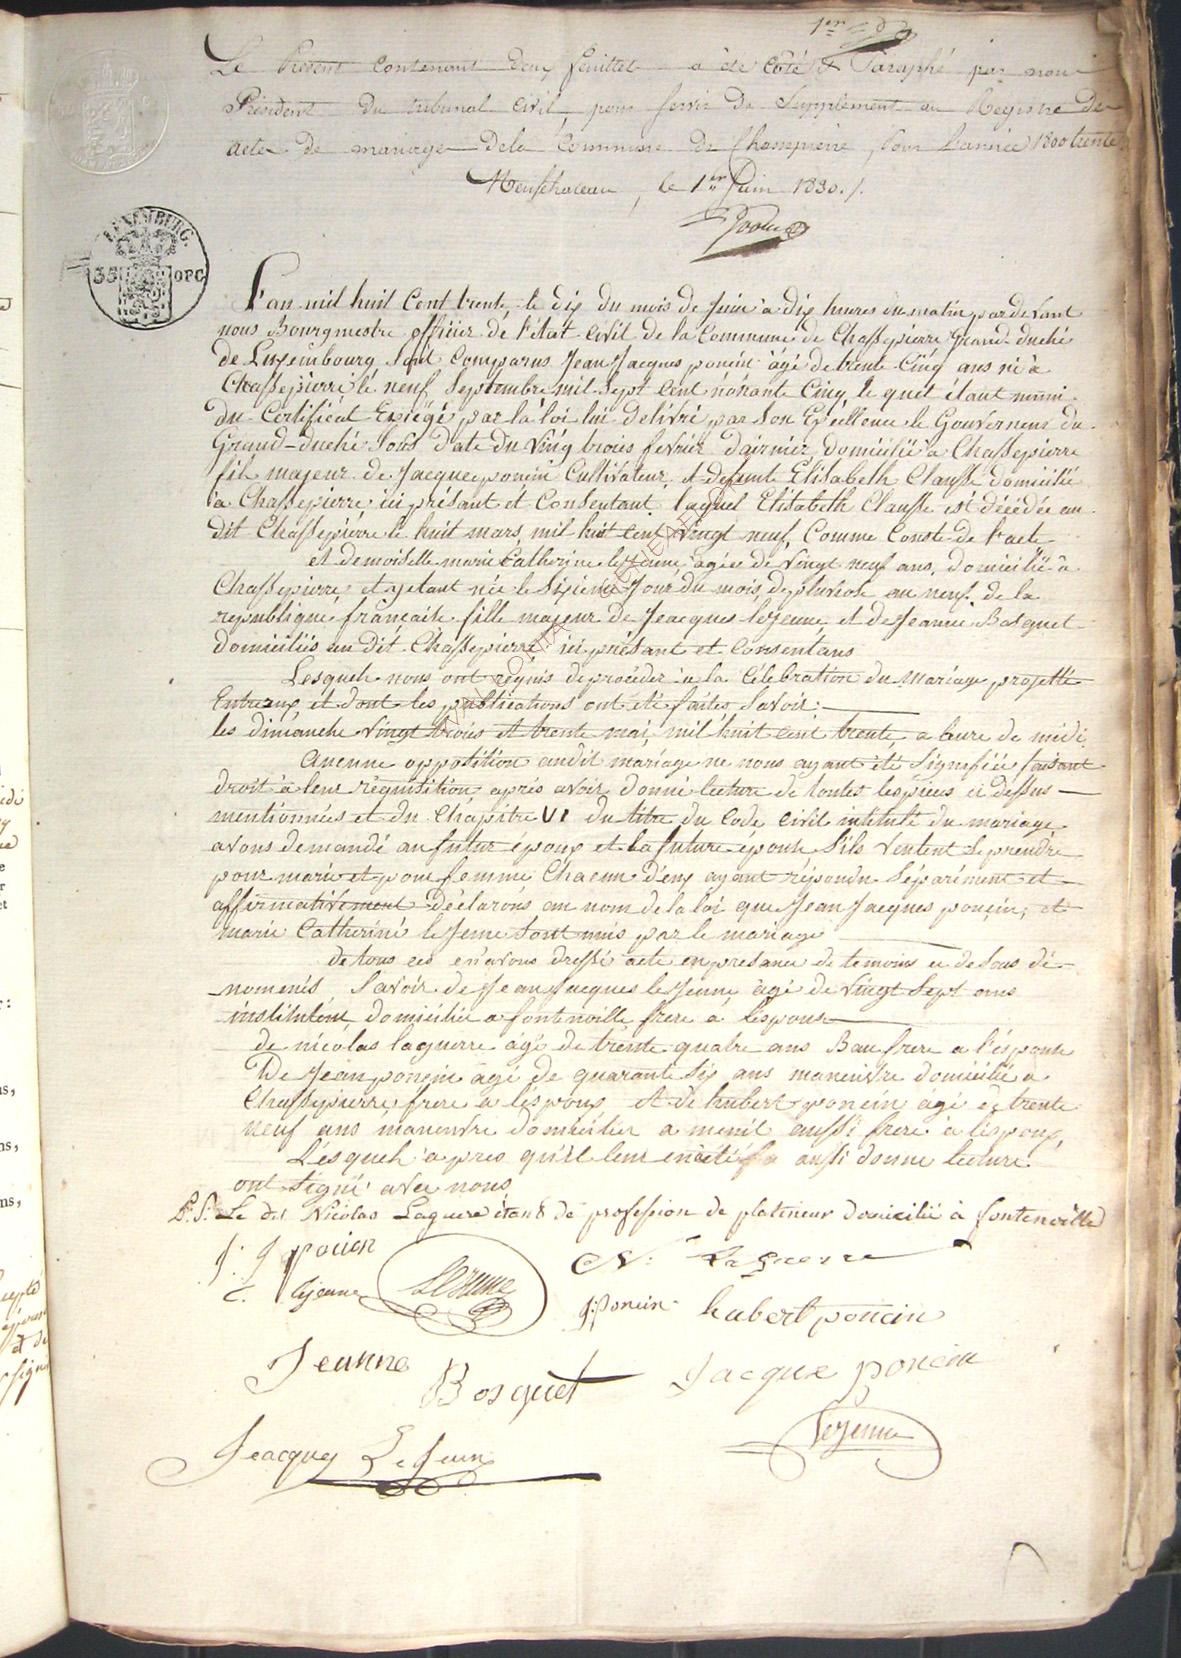 1er
Le Présent Contenant deux feuillets a été Côté & Paraphé par nous
Président du tribunal Civil, pour servir de Supplément au Registre des
actes de mariage de la Commune de Chassepierre, pour l'année 1800 trente
Neufchateau, le 1er Juin 1830./.
LUXEMBURG.
35 OPC
L'an mil huit Cent trente, le dix du mois de Juin à dix heures du matin par devant
nous Bourgmestre officier de l'état Civil de la Commune de Chassepierre Grand-duché
de Luxembourg sont Comparus Jean Jacques poncin âgé de trente Cinq ans né à
Chassepierre le neuf Septembre mil Sept Cent nonante Cinq, le quel étant muni
du Certificat Exiégé par la loi lui délivré par Son Excellence le Gouverneur du
Grand-duché Sous date du Vingt trois fevrier dairnier, domicilié à Chassepierre
fils majeur de Jacque poncin Cultivateur, et defunte Elisabeth Clausse domicilié
à Chassepierre ici présant et Consentant laquel Elisabeth Clausse est décédée au
dit Chassepierre le huit mars mil huit cent Vingt neuf, Comme Conste de l'acte
et demoiselle marie Catherine leJeune agée de Vingt neuf ans, domicilié à
Chassepierre et yetant née le Sixième Jour du mois de pluviose an neuf de la
republique française fille majeur de Jeacques leJeune et de Jeanne Bosquet
domiciliés au dit Chassepierre ici présant et Consentans
Lesquels nous ont réquis de procéder à la Célébration du Mariage projetté
Entreaux et dont les publications ont été faites Savoir:
les dimanche Vingt trois et trente mai, mil huit cent trente a lure de midi
Aucune opposition audit mariage ne nous ayant été Signefiée faisant
droit à leur réquisition après avoir donné lecture de toutes les pièces ci dessus
mentionnées et du Chapitre VI du titre du Code Civil intitulé du mariage
avons demandé au futur époux et la future épouse S'ils Veulent Se prendre
pour marie et pour femme Chacun d'eux ayant répondu Séparément et
affirmativement déclarons au nom de la loi que Jean Jacques poncin, et
marie Catherine le Jeune Sont unis par le mariage
de tous ces en avons dressé acte en presance de temoins ci desous dé-
nomenés Savoir de Jean Jacques le Jeune, âgé de Vingt Sept ans
instituteur, domicilié a fontenoille frere a lespouse
de nicolas laguerre agé de trente quatre ans Baufrere a l'éspouse
De Jean poncin agé de quarante Six ans maneuvre domicilié a
Chassepierre, frere a léspoux et de hubert poncin agé de trente
neuf ans maneuvre domicilier a menil aussi frere à léspoux,
Lesquels apres qu'il leur en aété aussi donne lecture
ont Signé avec nous
P.S. Le dit Nicolas Laguere étant de profession de platineur domicilié à fontenoille
J. J poncin
N. La guerre
C. lejeune
LeJeune
J: Poncin
hubert poncin
Jeanne Bosquet
Jacque poncin
leJeune
Jeacques Le Jeune